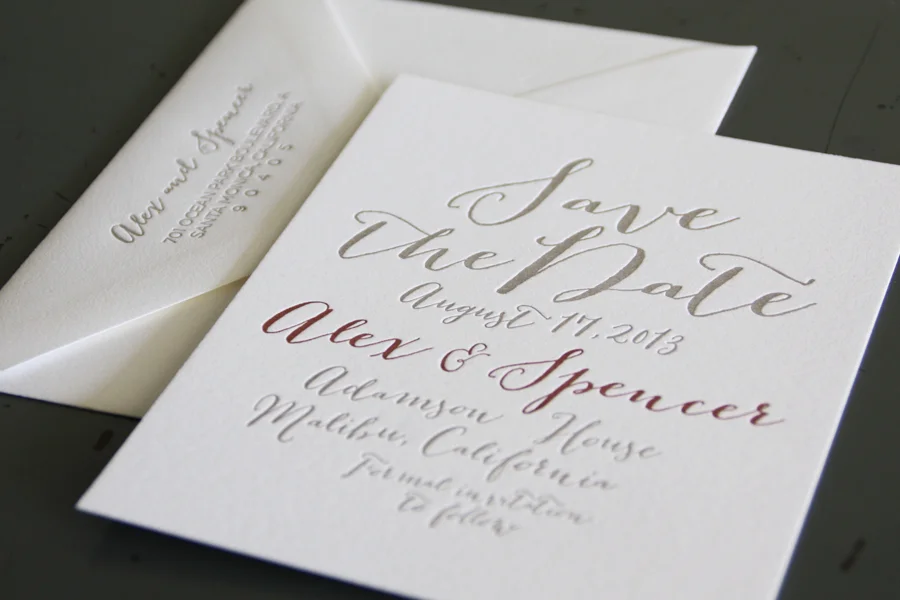 Alex and Spencer
701 OCEAN PARK BOULEVARD, A
SANTA MONICA CALIFORNIA
90405
Save
the Date
August 17, 2013
Alex & Spencer
Adamson House
Malibu, California
Formal invitation
to follow